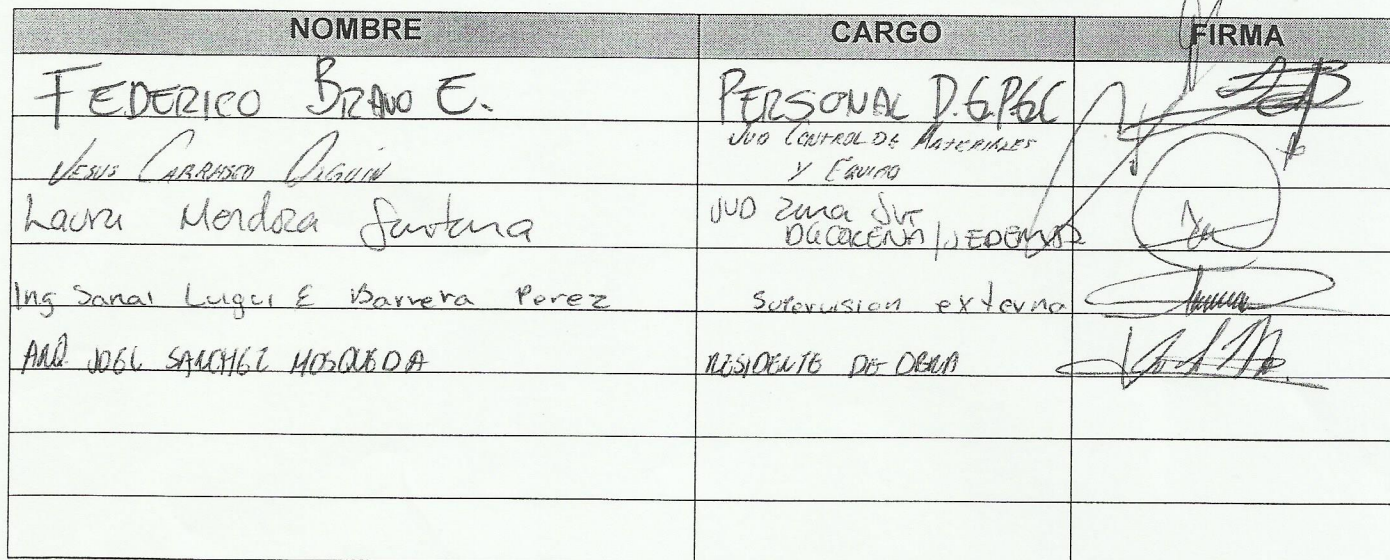 NOMBRE CARGO FIRMA
FEDERICO BRAVO E. PERSONAL D.G.P.G.C
JUD CONTROL DE MATERIALES
JESUS CARRASCO OLGUIN Y EQUIPO
Laura Mendoza Santana JUD zona Sur
DGCOCENA/JEDEMAR
Ing Sanai Lugui E Barrera Perez Supervision externa
ARQ JOEL SANCHEZ MOSQUEDA RESIDENTE DE OBRA